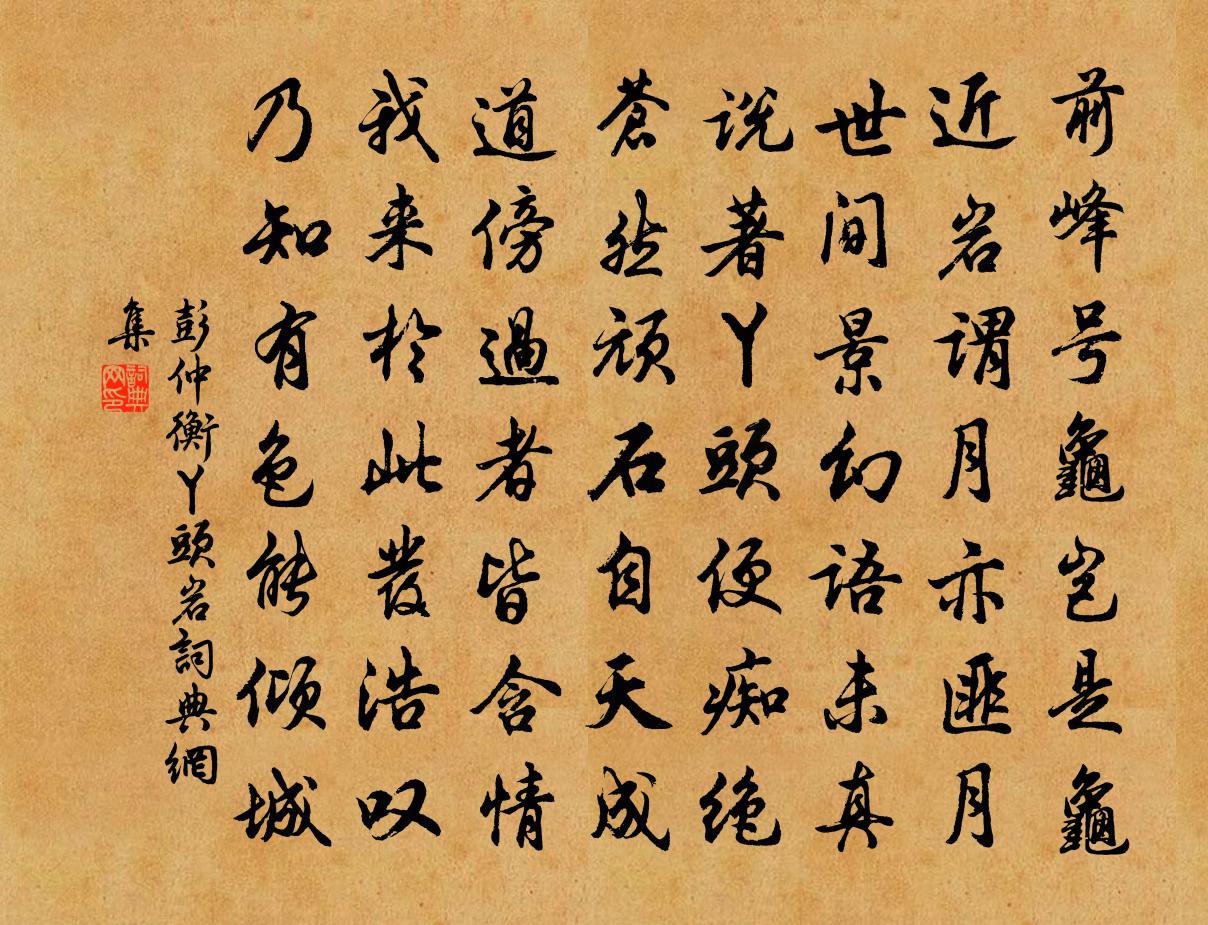 前峰号龜岂是龜
近岩谓月亦匪月
世间景幻语未真
说著丫頭便痴绝
蒼然顽石自天成
道傍過者皆含情
我来於此發浩叹
乃知有色能倾城
彭仲衡丫頭岩詞典網
集
詞典
网印